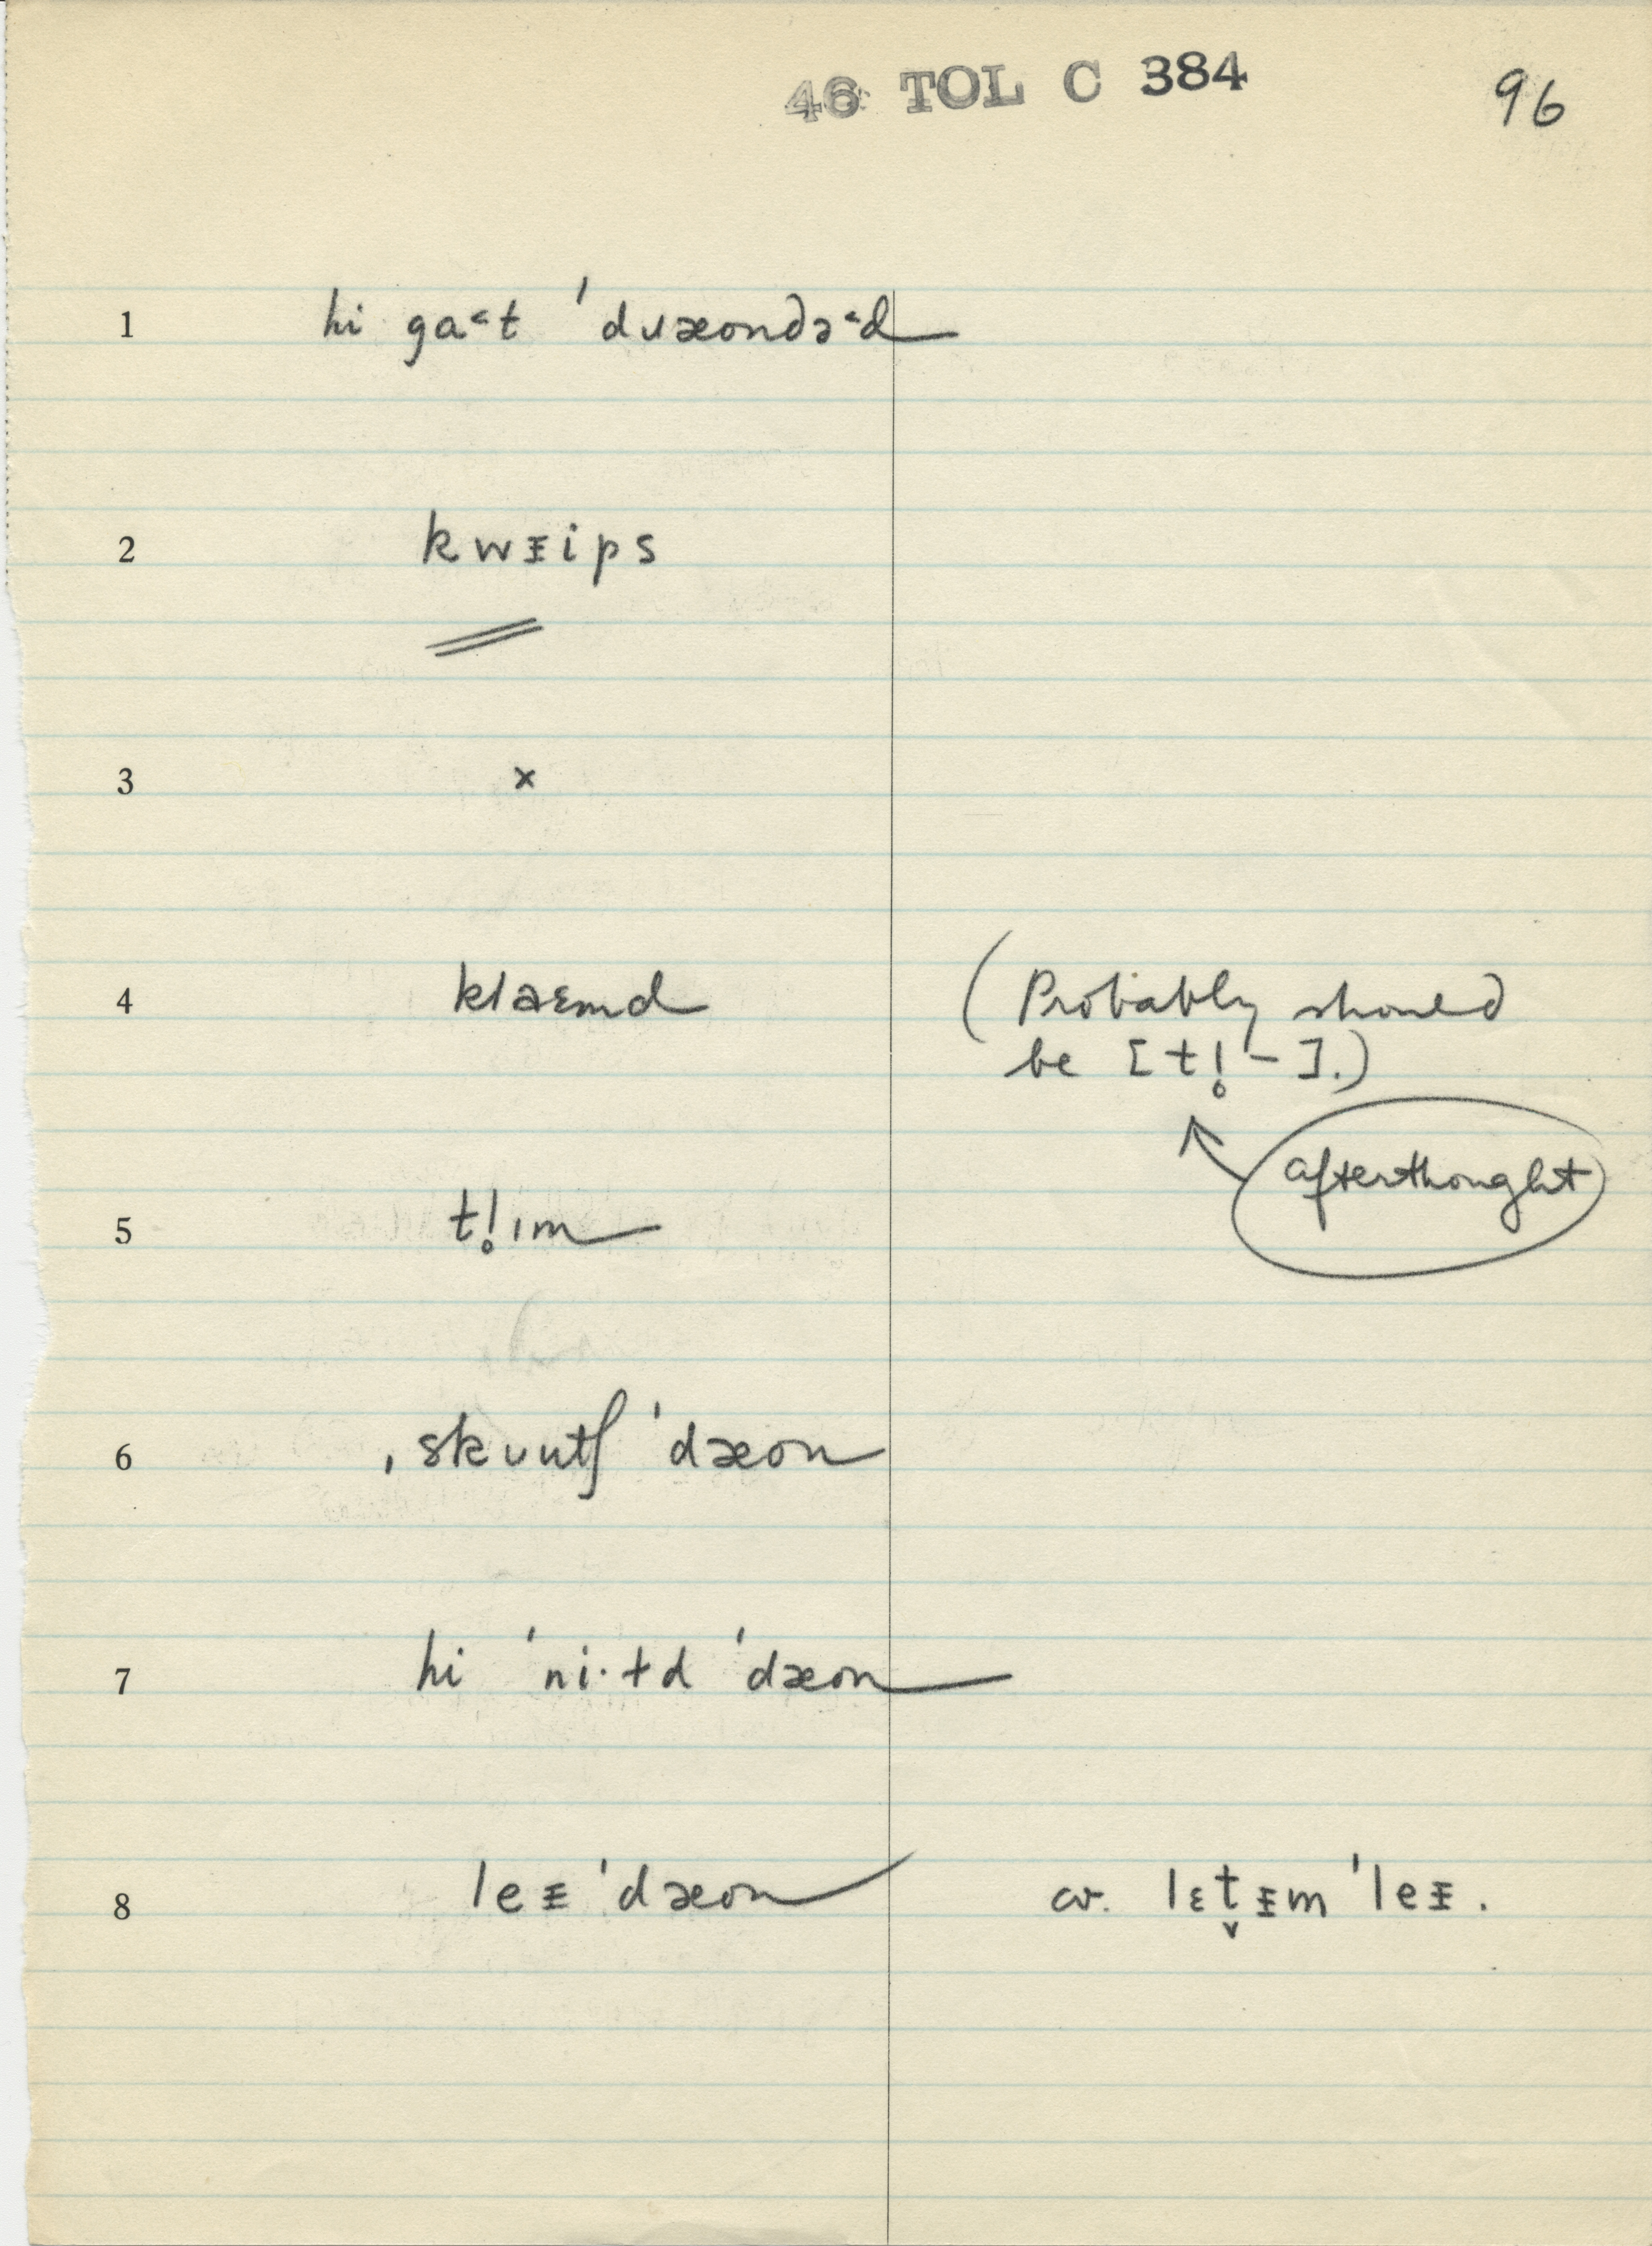 46 TOL C 384
96
1 hi ga˂t ˈdᴗæondə˂d
2 kwᵻips
3 ×
4 klaɛmd (Probably should
be [tl̥-].)
afterthought
5 tl̥ım
6 ˌskᴗutʃ ˈdæon
7 hi ˈni·ɫd ˈdæon
8 leᵻ ˈdæon cv. lɛt̬ᵻm ˈleᵻ.